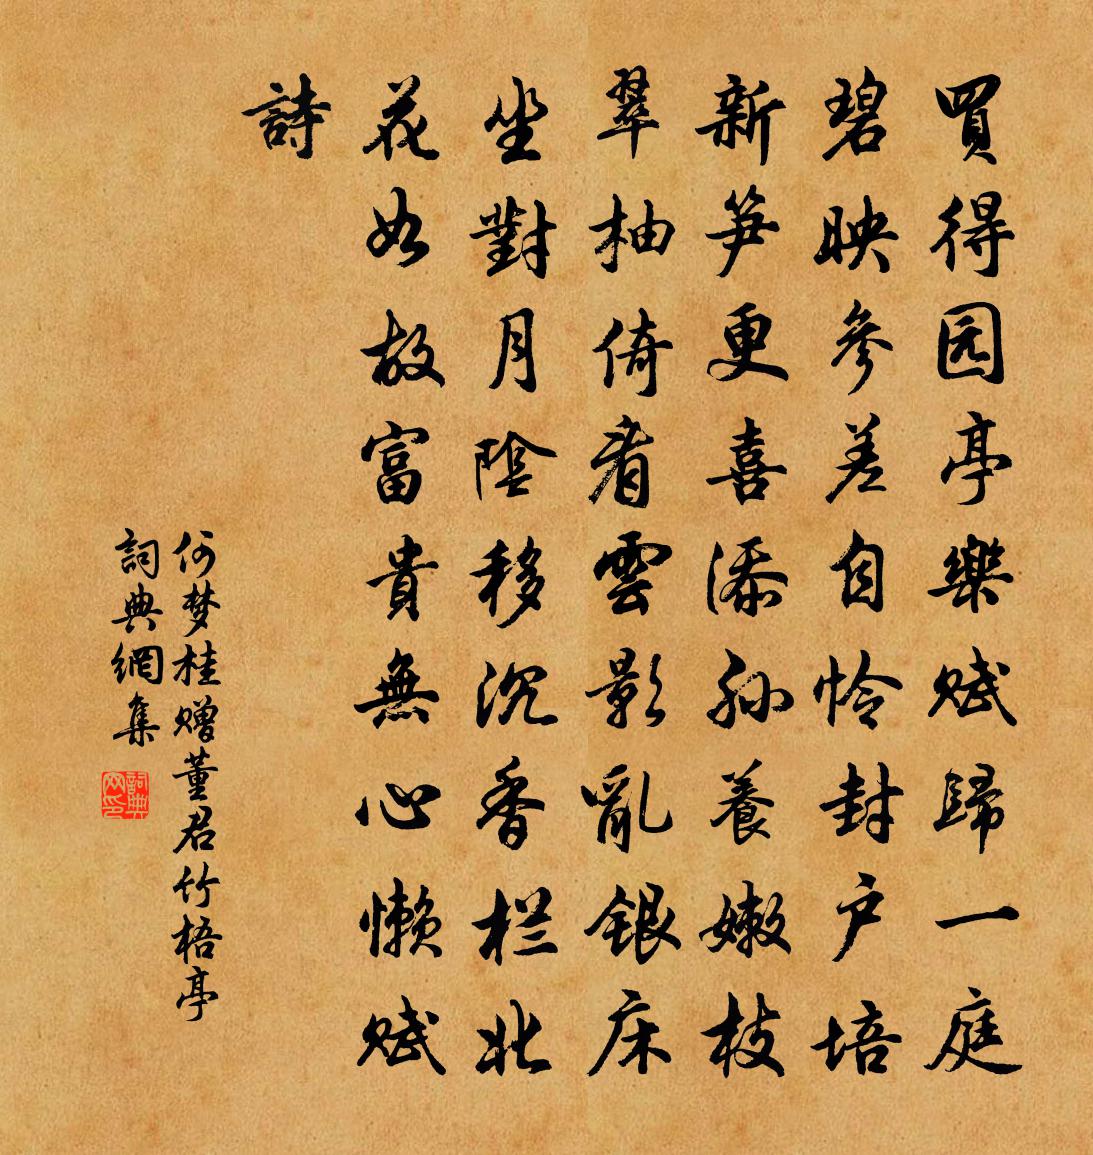 買得园亭樂赋歸一庭
碧映參差自怜封户培
新笋更喜添孙養嫩枝
翠柚倚看雲影亂銀床
坐對月陰移沉香栏北
花如故富貴無心懶赋
詩
何梦桂赠董君竹梧亭
詞典網集
詞典网印